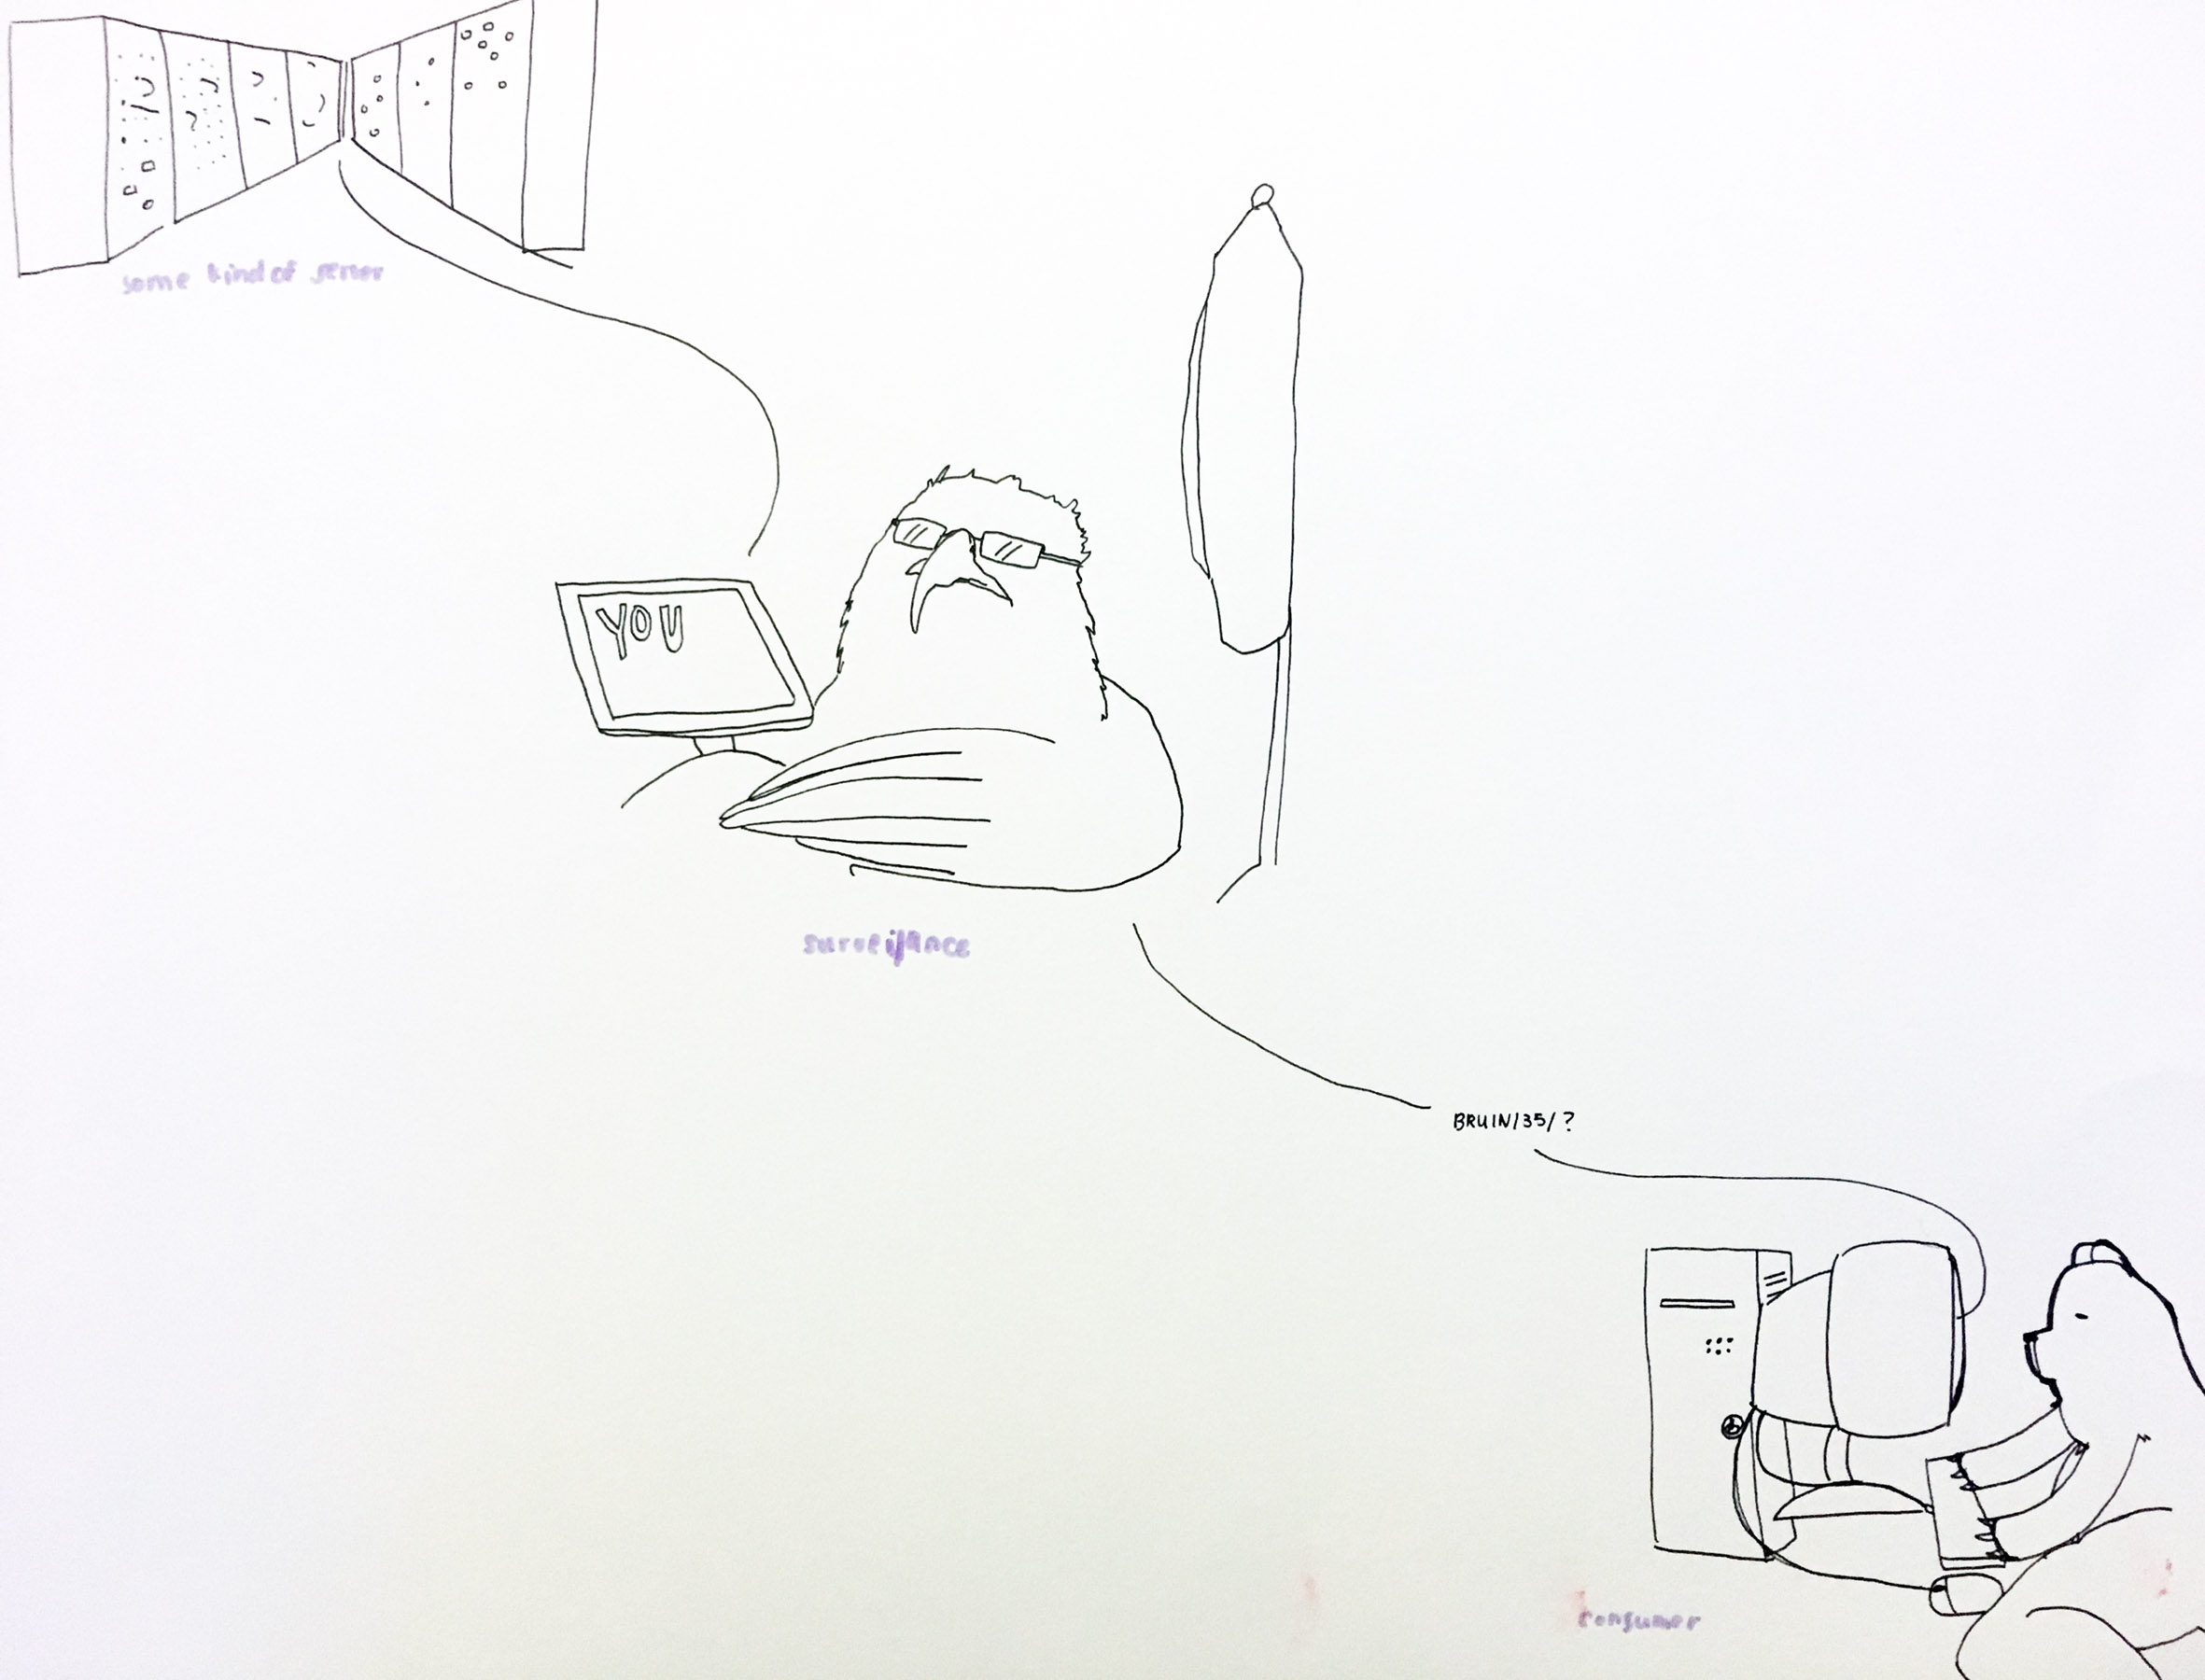 some kind of server
YOU
surveillance
BRUIN/35/?
consumer